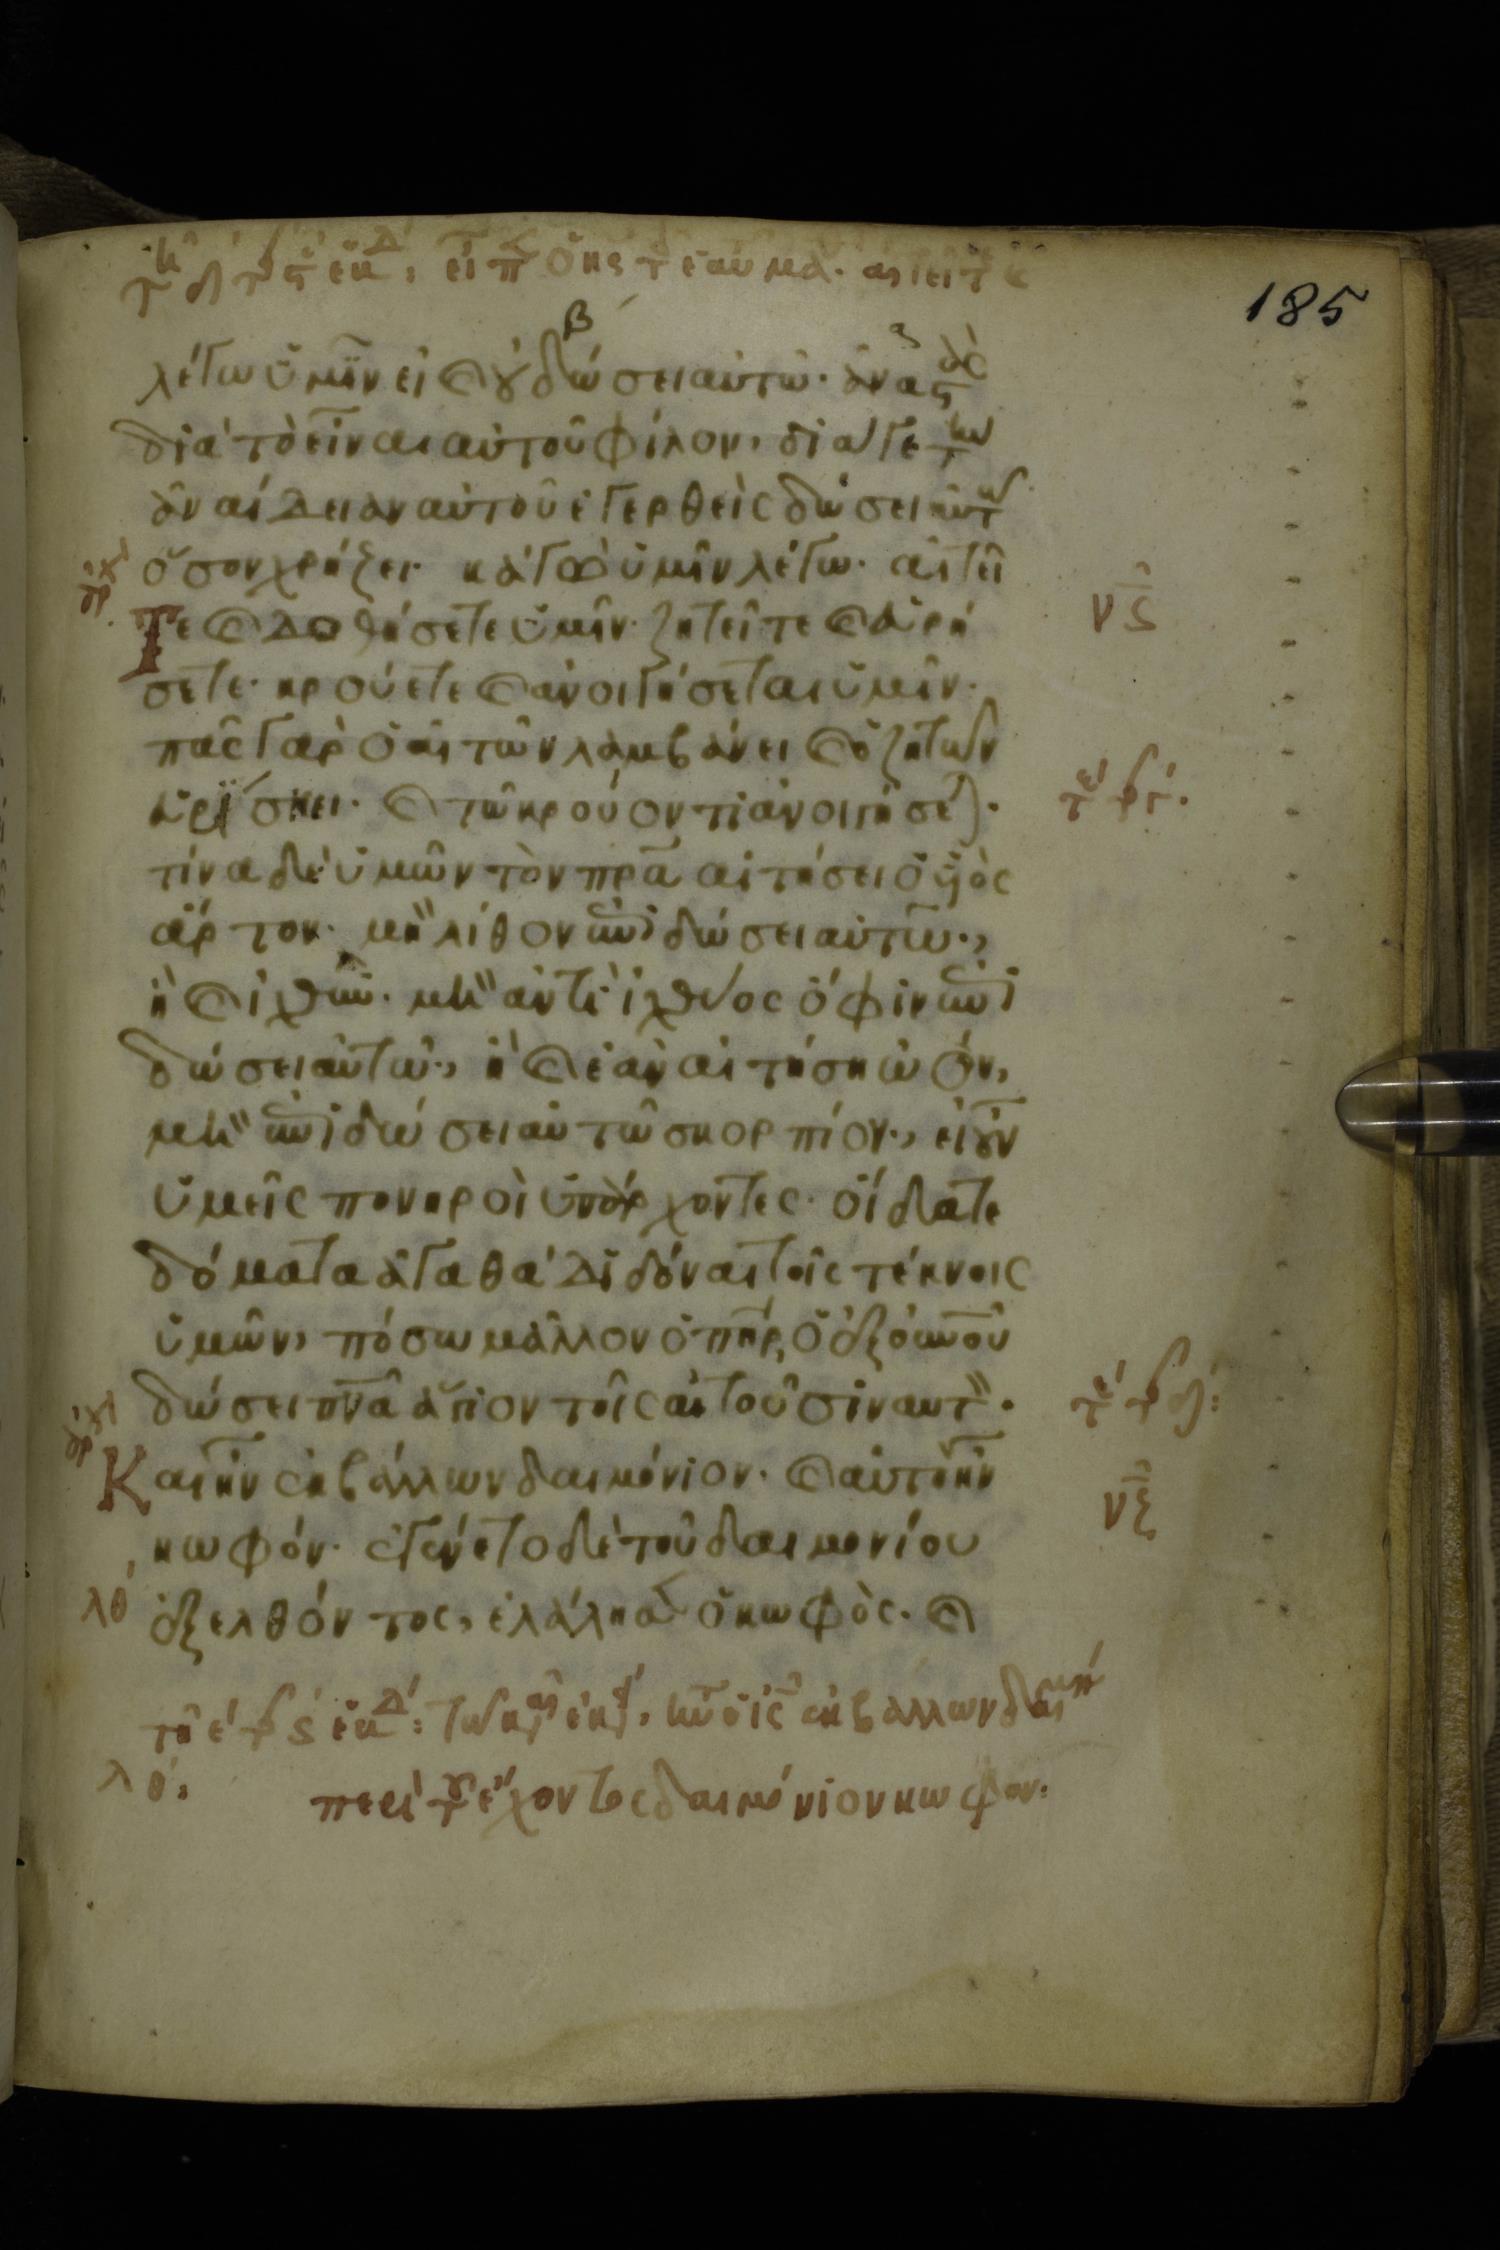 185
λέγω ὑμῖν εἰ καὶ οὐ δώσει αὐτῶ· ἀναστὰς
διὰ τὸ εἶναι αὐτοῦ φίλον, διά γε τὴν
ἀναίδειαν αὐτοῦ ἐγερθεὶς δώσει αὐτῶ
ὅσον χρήζει· κἀγὼ ὑμῖν λέγω· αἰτεῖ
Τε καὶ δοθήσεται ὑμῖν· ζητεῖτε καὶ εὑρή
σετε· κρούετε καὶ ἀνοιγήσεται ὑμῖν·
πᾶς γὰρ ὁ αἰτῶν λαμβάνει καὶ ὁ ζητῶν
εὑρίσκει· καὶ τῶ κρούοντι ἀνοιγήσεται·
τίνα δὲ ὑμῶν τὸν πρα αἰτήσει ὁ υἱὸς
ἄρτον· μὴ λίθον ἐπιδώσει αὐτῶ·,
ἢ καὶ ἰχθύν· μὴ ἀντὶ ἰχθύος ὄφιν ἐπι
δώσει αὐτῶ·, ἢ καὶ ἐὰν αἰτήση ὠόν,
μὴ ἐπιδώσει αὐτῶ σκορπίον·, εἰ οὖν
ὑμεῖς πονηροὶ ὑπάρχοντες· οἴδατε
δόματα ἀγαθὰ διδόναι τοῖς τέκνοις
ὑμῶν, πόσω μᾶλλον ὁ πηρ, ὁ ἐξ οὐνοῦ
δώσει πνα ἅγιον τοῖς αἰτοῦσιν αὐτόν·
Και ἦν ἐκβάλλων δαιμόνιον· καὶ αὐτὸ ἦν
κωφόν· ἐγένετο δὲ τοῦ δαιμονίου
ἐξελθόντος, ἐλάλησεν ὁ κωφὸς· καὶ
λθ
λθ,
περὶ τοῦ ἔχοντος δαιμόνιον κωφον·